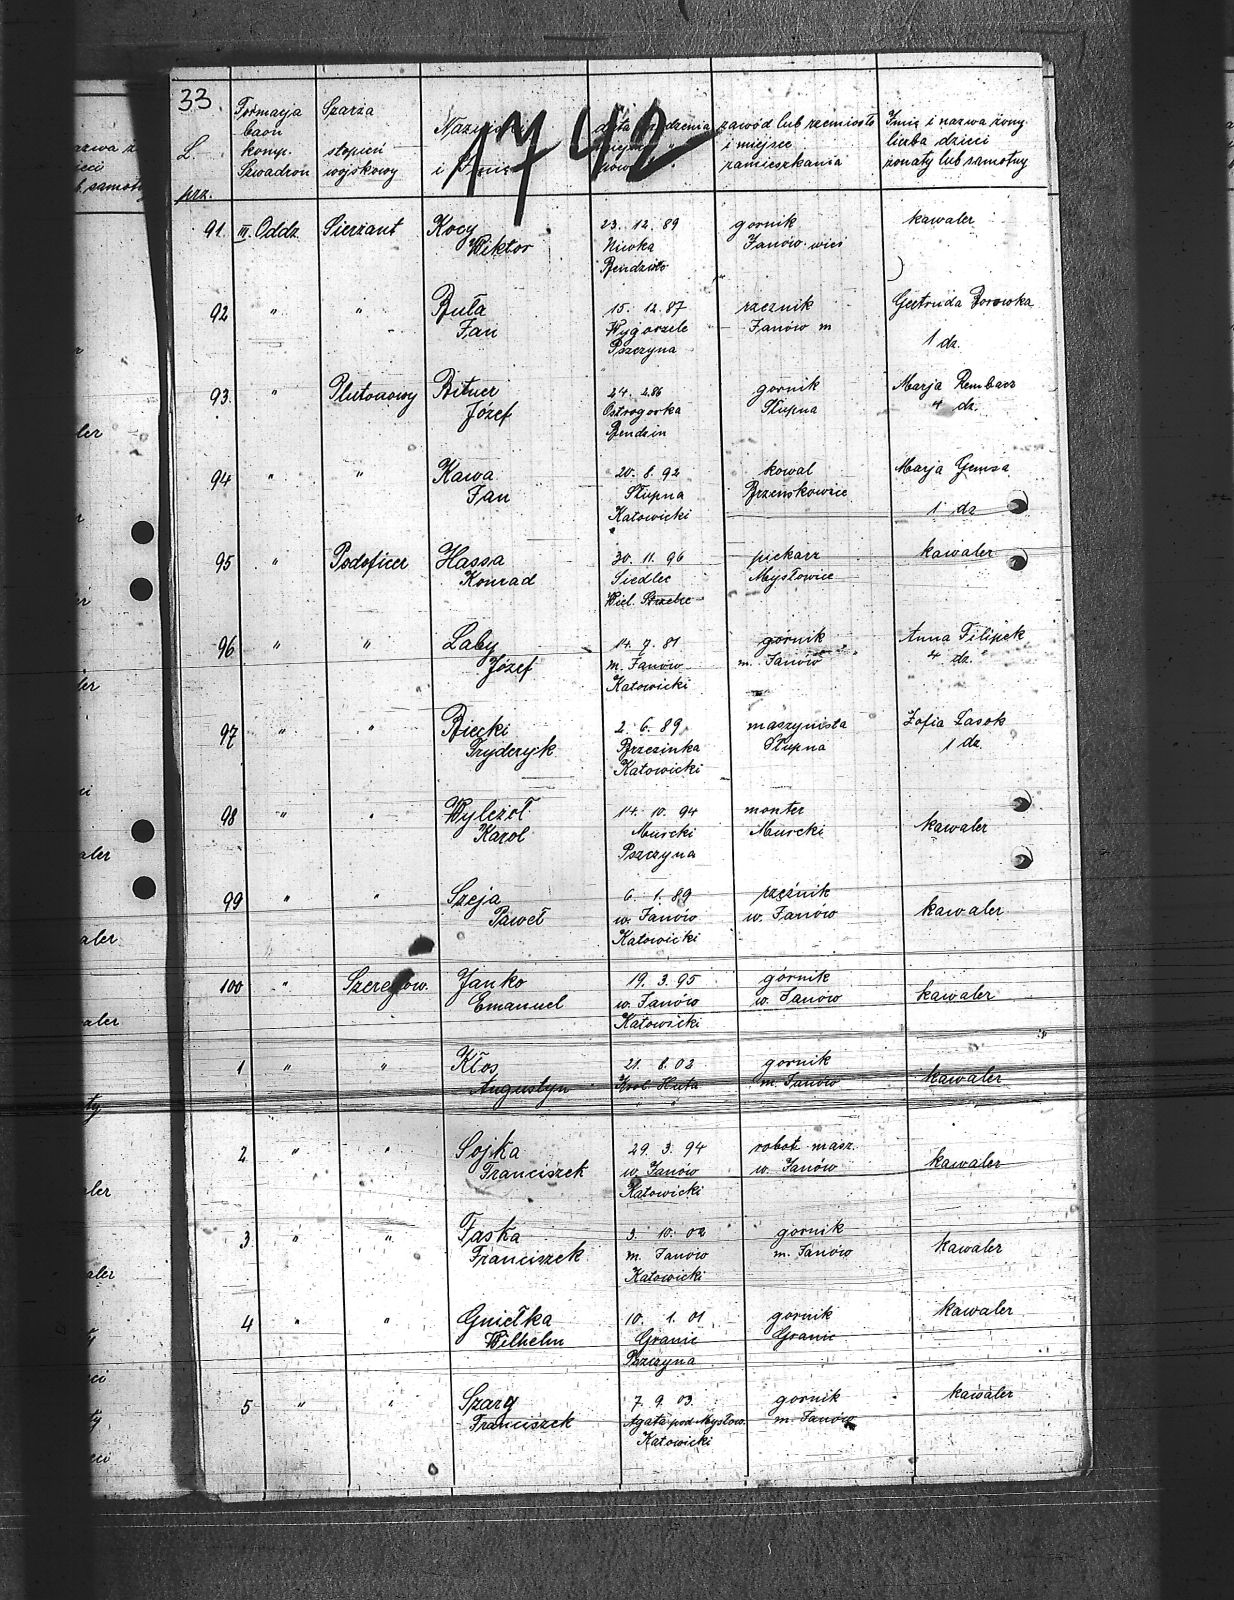 33
1742
Formacja Szarża
baon
komp. stopień
Szwadron wojskowy
L. prz.
zawód lub rzemiosło
i miejsce
zamieszkania
Imię i nazwa żony
liczba dzieci
żonaty lub samotny
91. III. Oddz. Sierżant Kocy 23. 12. 89 gornik kawaler
Wiktor Niwka Janów wieś
92 " " Buła 15. 12. 87 rzeznik Gertruda Borowka
Jan Wygorzele Janów m
Pszczyna 1 dz.
93. " Plutonowy Bitner 24. 2.86 gornik Marja Rembacz
Józef Ostrogorka Słupna 4 dz.
Bendzin
94 " " Kawa 20. 8. 92 kowal Marja Gemsa
Jan Słupna Brzenskowice
Katowicki 1 dz
95 " Podoficer Hassa 30. 11. 96 piekarz kawaler
Konrad Siedlec Mysłowice
Wiel. Strzelce
96 " " Laby 14. 7. 81 górnik Anna Filipek
Józef m. Janów m. Janów 4 dz.
Katowicki
97 " " Biecki 2. 6. 89 maszynista Zofia Lasok
Fryderyk Brzezinka Słupna 1 dz.
Katowicki
98 " " Wylezoł 14. 10. 94 monter kawaler
Karol Murcki Murcki
Pszczyna
99 " " Szeja 6. 1. 89 rzeźnik kawaler
Paweł w. Janów w. Janów
Katowicki
100 " Szeregow. Janko 19. 3. 95 górnik kawaler
Emanuel w. Janów w. Janów
Katowicki
1 " " Kłos 21. 8. 02 gornik kawaler
Augustyn Krol. Huta m. Janów
2 " " Sojka 29. 3. 94 robot. masz. kawaler
Franciszek w. Janów w. Janów
Katowicki
3 " " Jaska 3. 10. 02 gornik kawaler
Franciszek m. Janów m. Janów
Katowicki
4 " " Gniełka 10. 1. 01 gornik kawaler
Wilhelm Granic Granic
Pszczyna
5 " " Szarg 7. 9. 03. gornik kawaler
Franciszek Agata pod Mysłow. m. Janów
Katowicki